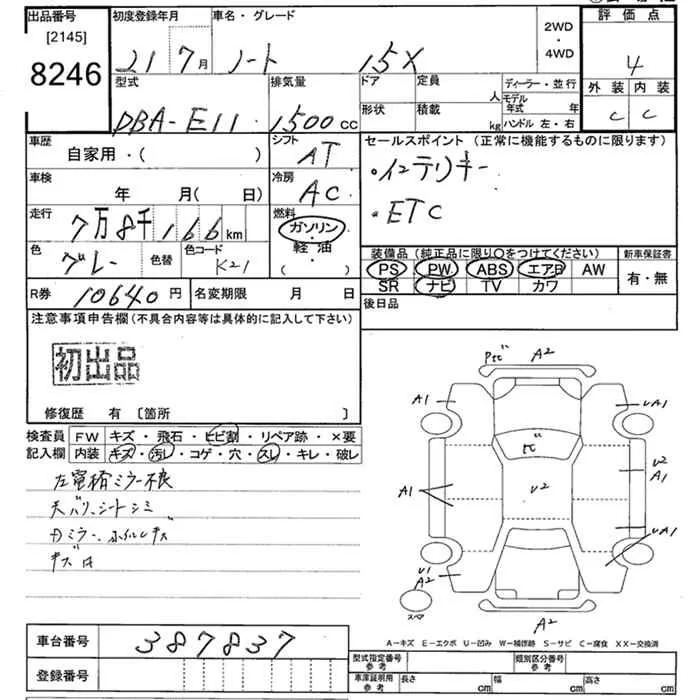 出品番号 初度登録年月 車名・グレード 2WD・4WD 評価点
[2145]
8246 21 7月 ノート 15X 4
型式 排気量 ドア 定員 人 ディーラー・並行 外装 内装
DBA-E11 1500cc 形状 積載 kg モデル年式 年 ハンドル 左・右 C C
車歴 自家用・( ) シフト AT セールスポイント (正常に機能するものに限ります)
車検 年 月(日) 冷房 AC ・インテリキー
走行 7万8千166km 燃料 ガソリン・軽油・( ) ・ETC
色 グレー 色替 色コード K21 装備品 (純正品に限り○をつけてください) 新車保証書
PS PW ABS エアB AW 有・無
R券 10640円 名変期限 月 日 SR ナビ TV カワ
注意事項申告欄(不具合内容等は具体的に記入して下さい) 後日品
初出品
修復歴 有 [箇所 ]
検査員 FW キズ・飛石・ヒビ割・リペア跡・×要
記入欄 内装 キズ・汚レ・コゲ・穴・スレ・キレ・破レ
左電格ミラー不良
天バリ、シートシミ
キズ
A2
A1 UA1
U2
A1 U2 A1
UA1
U1 A2
スペア A2
A-キズ E-エクボ U-凹み W-補修跡 S-サビ C-腐食 XX-交換済
車台番号 387837 型式指定番号 参考 類別区分番号 参考
登録番号 車庫証明用 参考 長さ cm 幅 cm 高さ cm